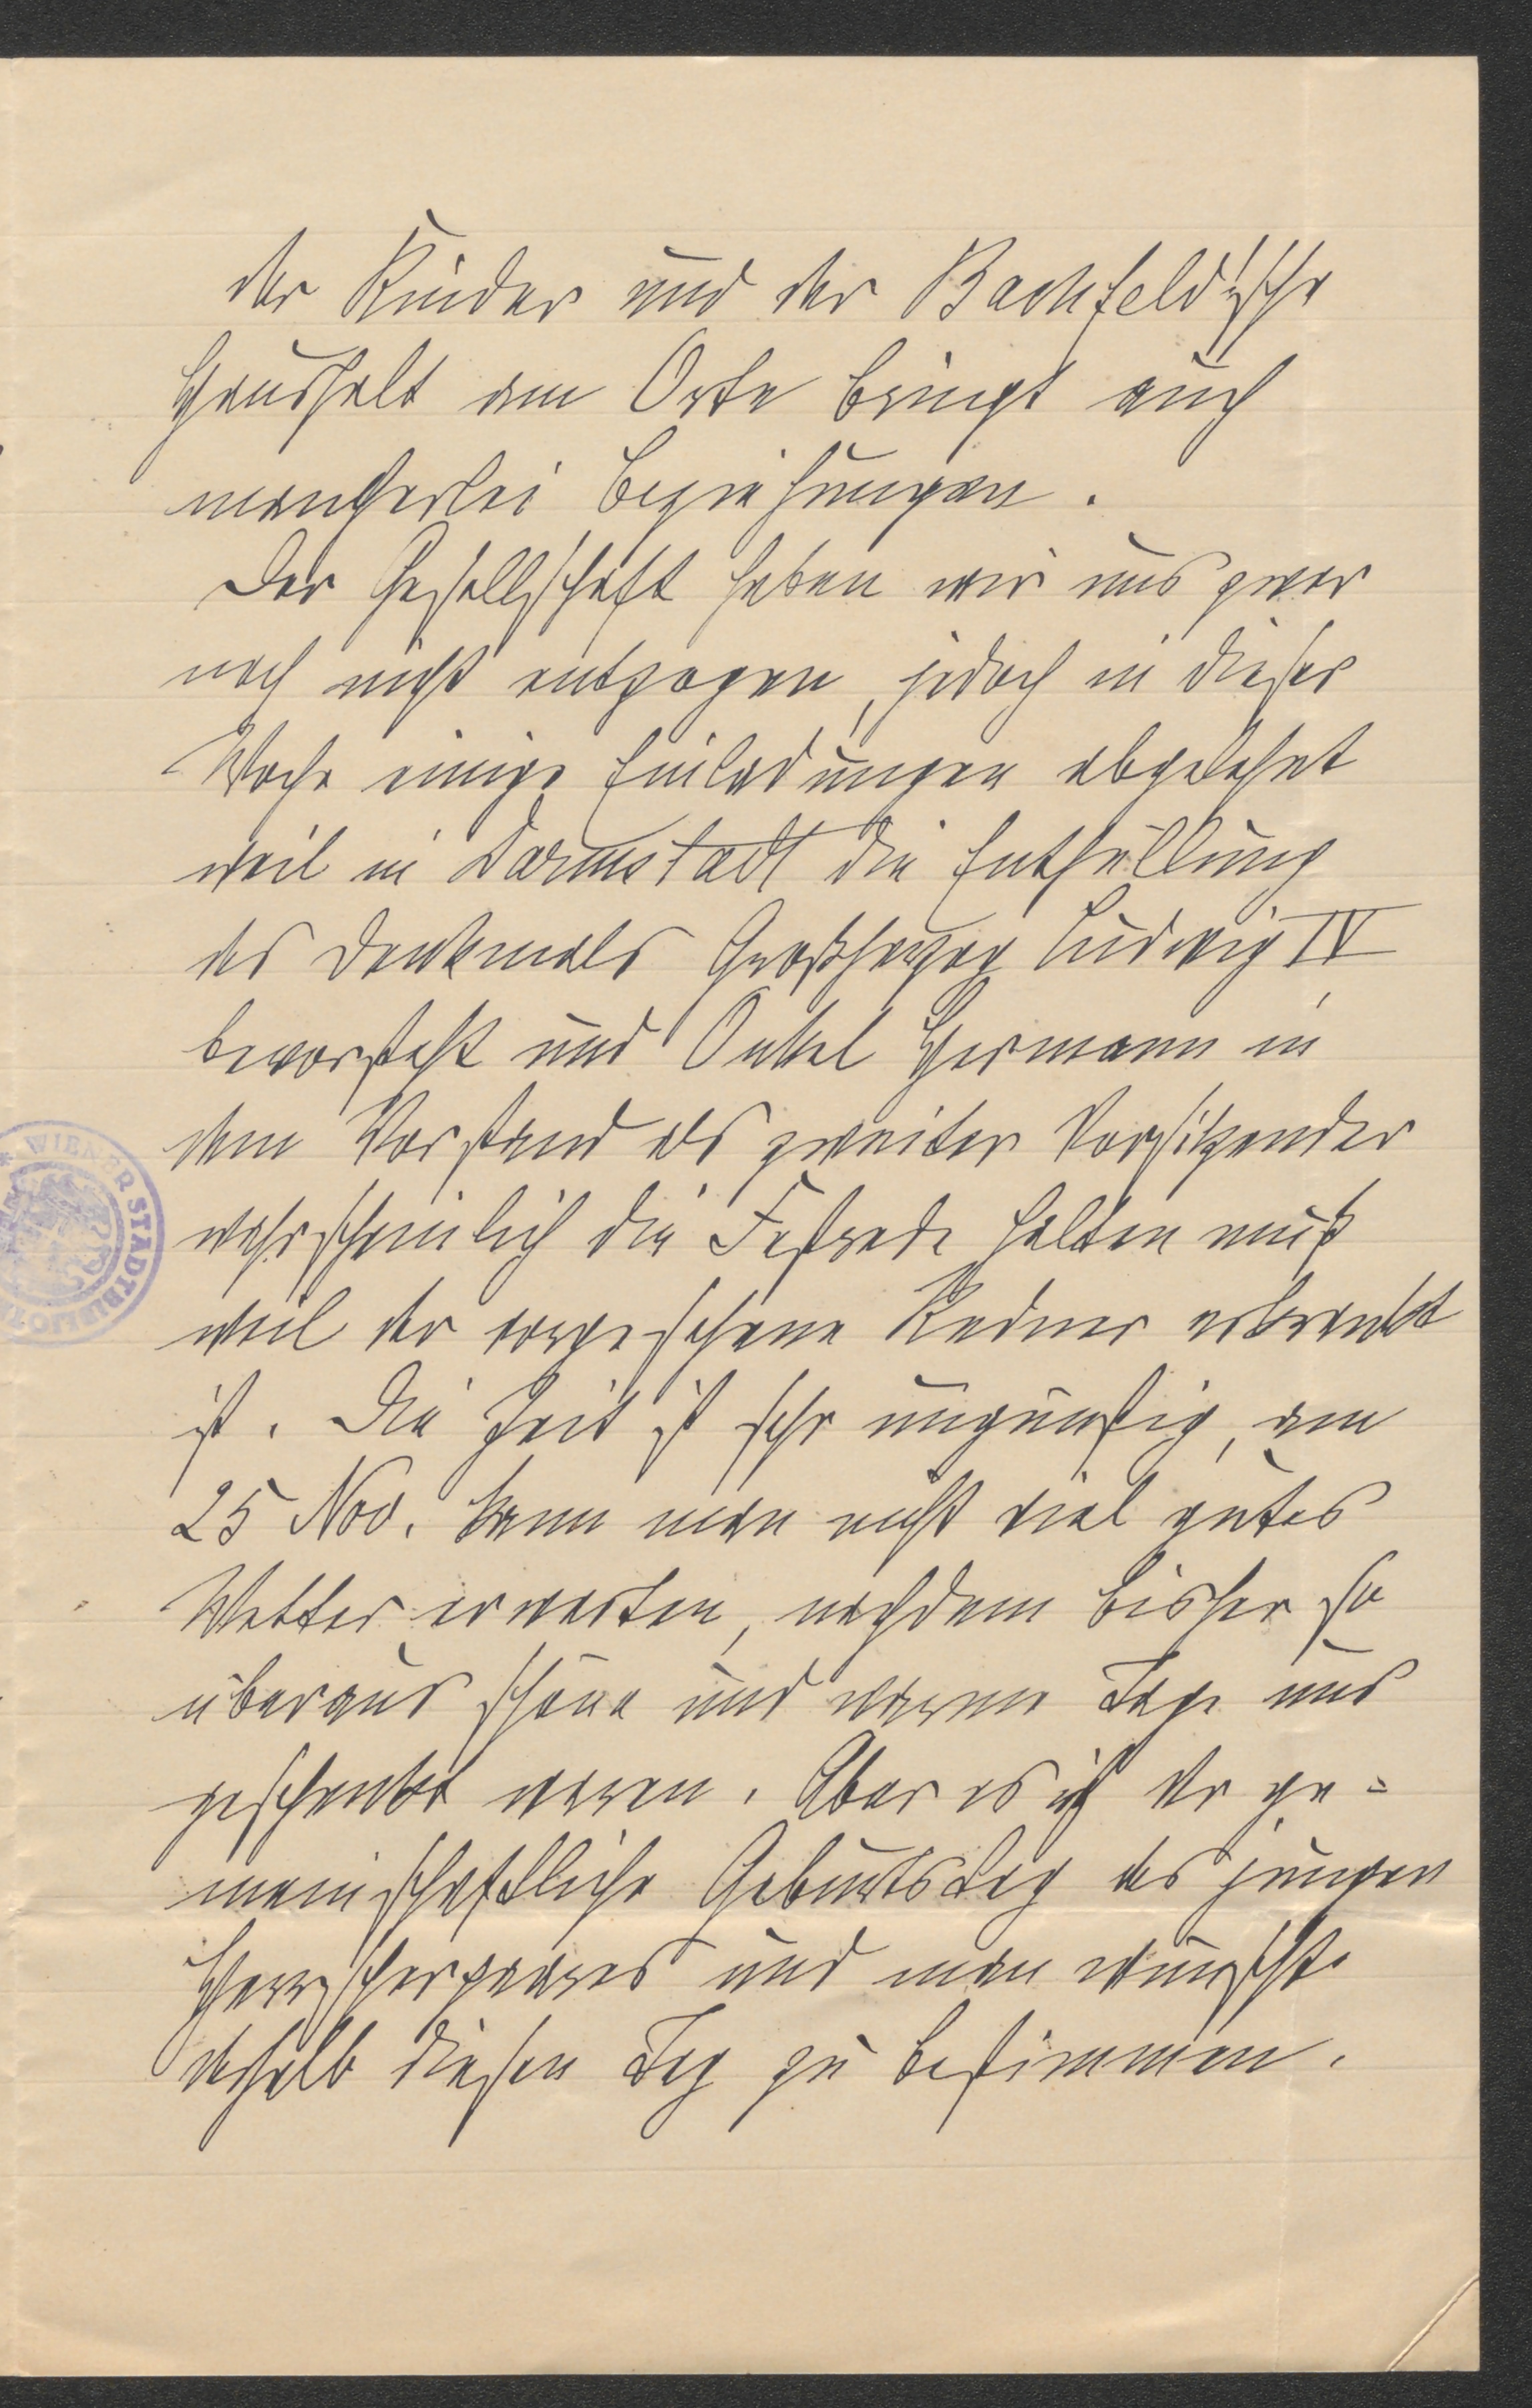 der Kinder und der Bachfeld'sche
Haushalt am Orte bringt auch
mancherlei Beziehungen.
Der Gesellschaft haben wir uns zwar
noch nicht entzogen, jedoch in dieser
Woche einige Einladungen abgelehnt
weil in Darmstadt die Enthüllung
des Denkmals Großherzog Ludwig IV
bevorsteht und Onkel Hermann in
dem Vorstand als zweiter Vorsitzender
wahrscheinlich die Festrede halten muß
weil der vorgesehene Redner erkrankt
ist. Die Zeit ist sehr ungünstig, am
25 Nov. kann man nicht viel gutes
Wetter erwarten, nachdem bisher so
überaus schöne und warme Tage uns
geschenkt waren. Aber es ist der ge-
meinschaftliche Geburtstag des jungen
Herrscherpaares und man wünschte
deshalb diesen Tag zu bestimmen.
WIENER STADTBIBLIOTHEK